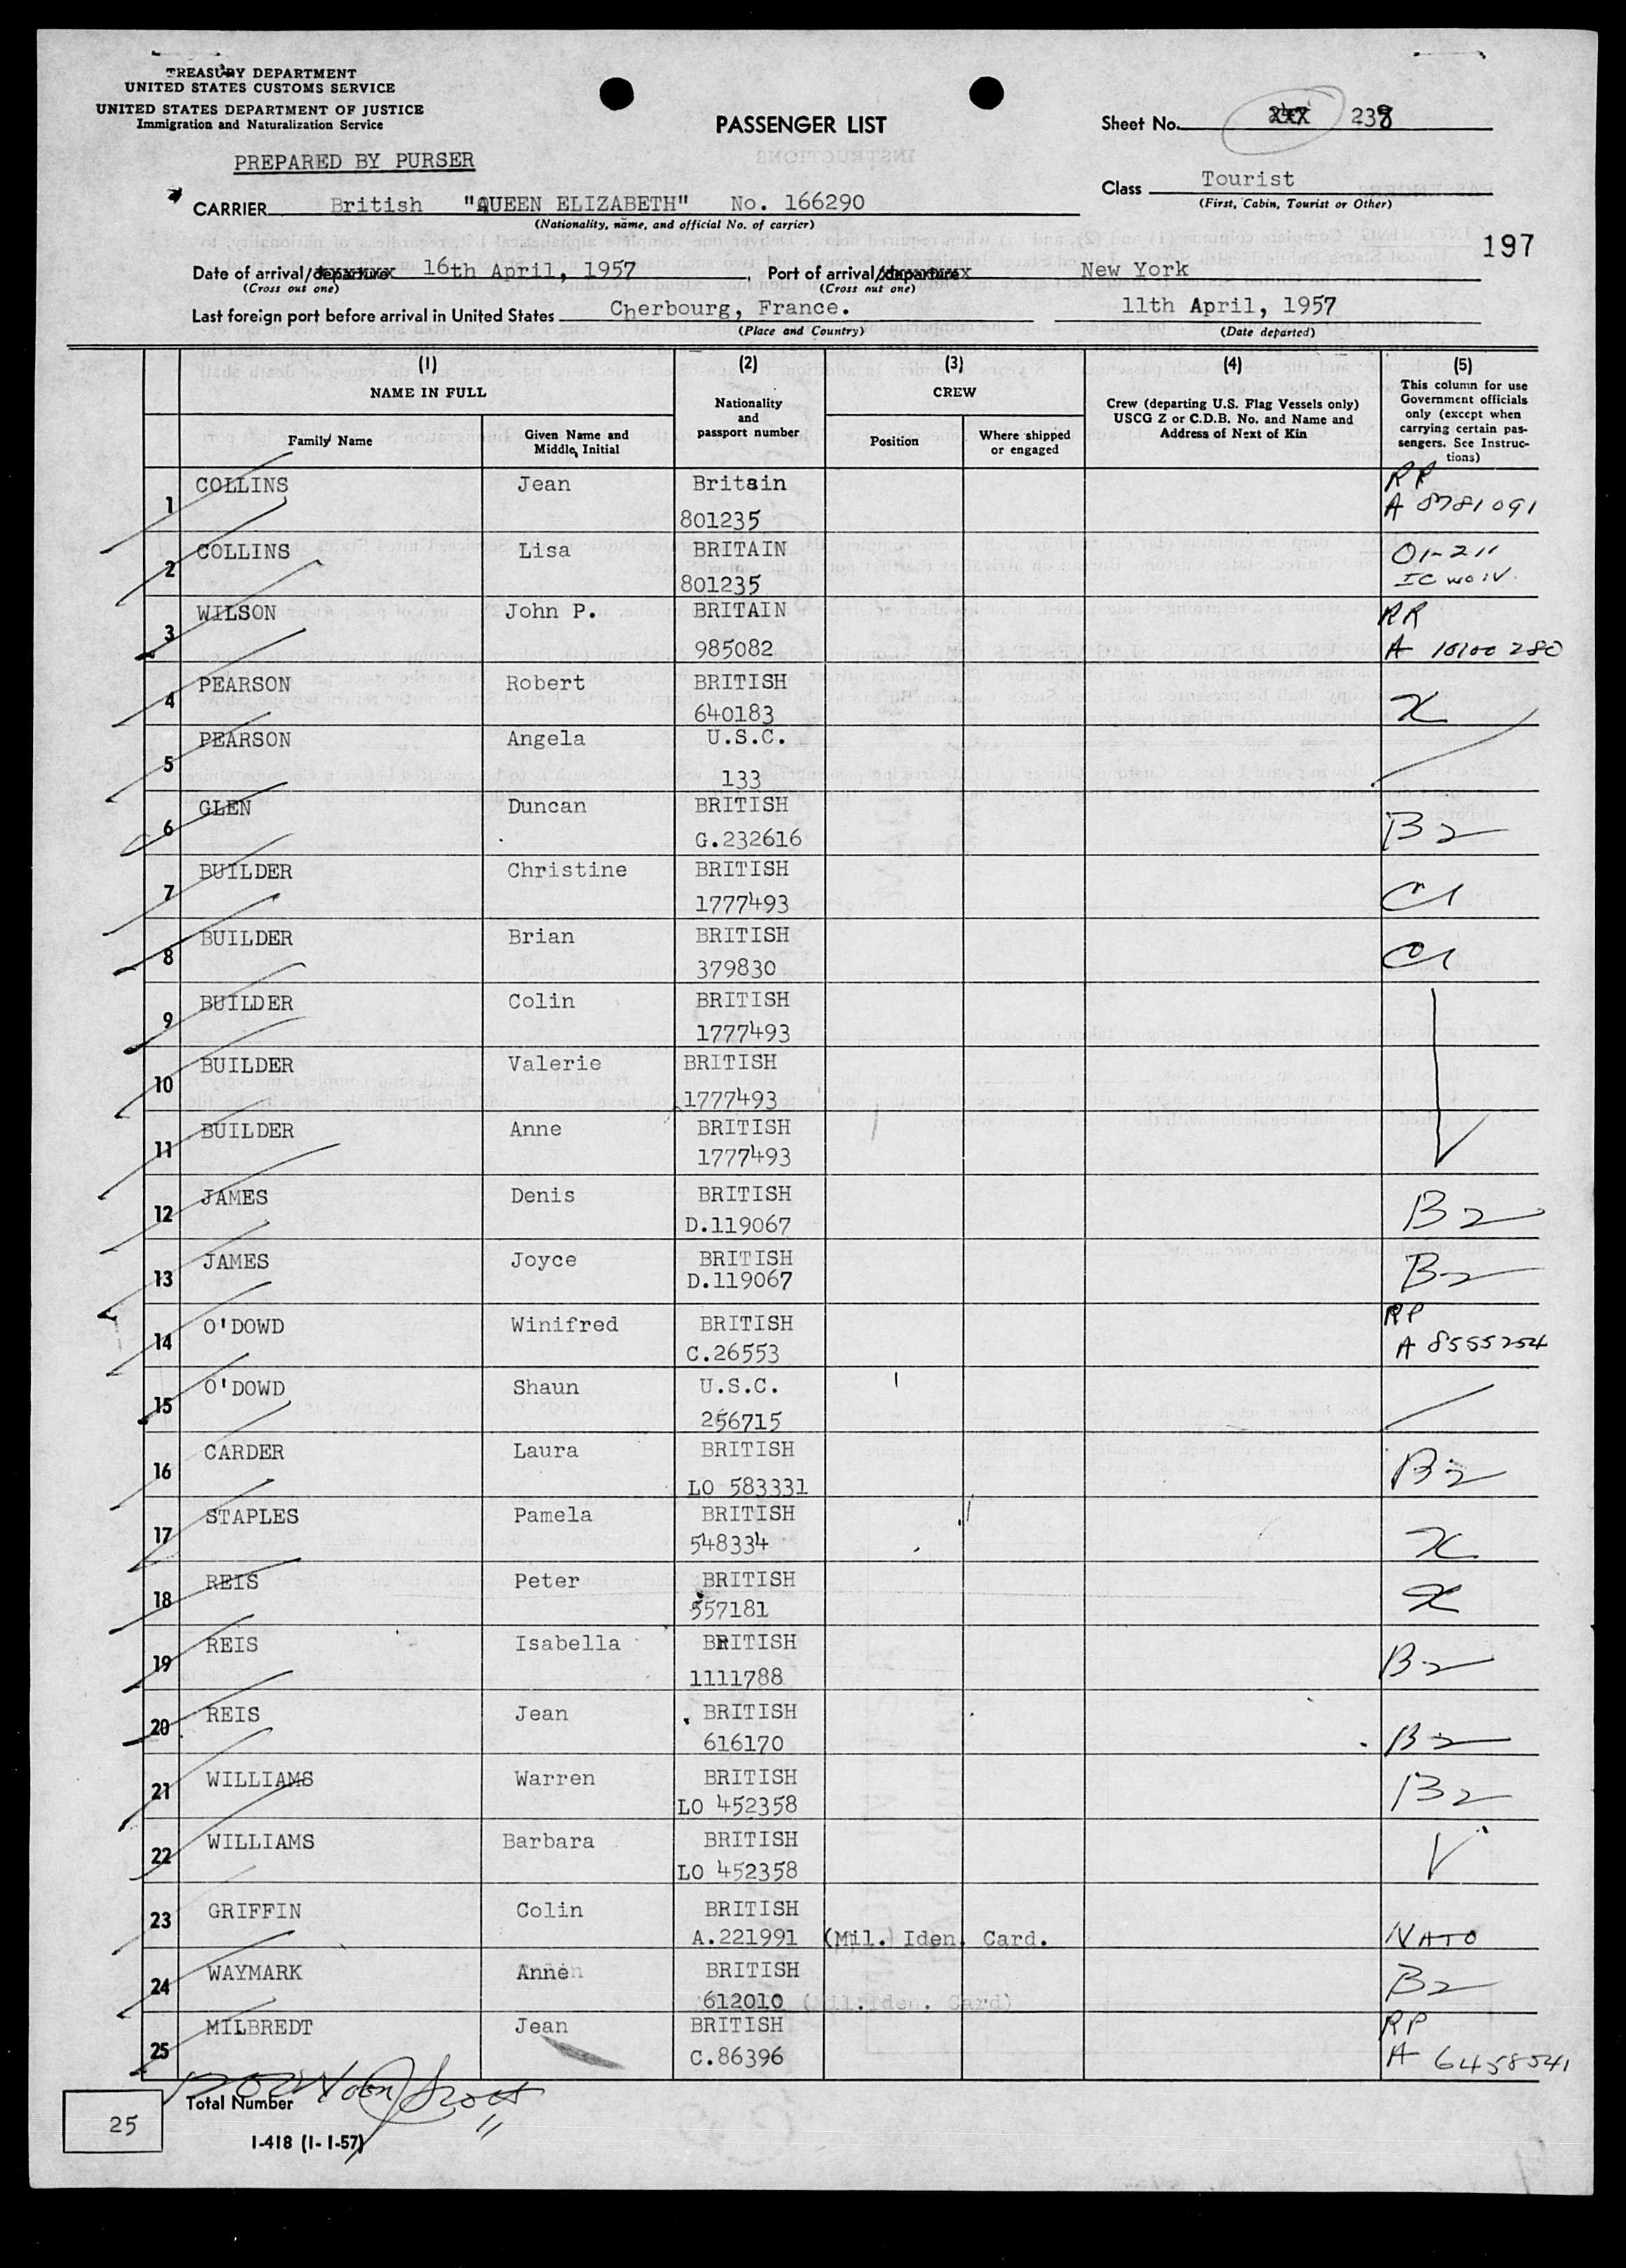 TREASURY DEPARTMENT
UNITED STATES CUSTOMS SERVICE
UNITED STATES DEPARTMENT OF JUSTICE
Immigration and Naturalization Service
PASSENGER LIST
Sheet No. 238
PREPARED BY PURSER
Class Tourist
(First, Cabin, Tourist or Other)
CARRIER British "QUEEN ELIZABETH" No. 166290
(Nationality, name, and official No. of carrier)
197
Date of arrival/departure 16th April, 1957, Port of arrival/departure New York
(Cross out one) (Cross out one)
Last foreign port before arrival in United States Cherbourg, France. 11th April, 1957
(Place and Country) (Date departed)
(1) NAME IN FULL
Family Name
Given Name and Middle Initial
(2) Nationality and passport number
(3) CREW
Position
Where shipped or engaged
(4) Crew (departing U.S. Flag Vessels only) USCG Z or C.D.B. No. and Name and Address of Next of Kin
(5) This column for use Government officials only (except when carrying certain passengers. See Instructions)
1 COLLINS Jean Britain RP
801235 A 8781091
2 COLLINS Lisa BRITAIN 01-211
801235 IC WO IV.
3 WILSON John P. BRITAIN RR
985082 A 10100280
4 PEARSON Robert BRITISH
640183 X
5 PEARSON Angela U.S.C.
133
6 GLEN Duncan BRITISH
G.232616 B2
7 BUILDER Christine BRITISH
1777493 C1
8 BUILDER Brian BRITISH
379830 C1
9 BUILDER Colin BRITISH
1777493
10 BUILDER Valerie BRITISH
1777493
11 BUILDER Anne BRITISH
1777493
12 JAMES Denis BRITISH
D.119067 B2
13 JAMES Joyce BRITISH
D.119067 B2
14 O'DOWD Winifred BRITISH RP
C.26553 A 8555254
15 O'DOWD Shaun U.S.C.
256715
16 CARDER Laura BRITISH
LO 583331 B2
17 STAPLES Pamela BRITISH
548334 X
18 REIS Peter BRITISH
557181 X
19 REIS Isabella BRITISH
1111788 B2
20 REIS Jean BRITISH
616170 B2
21 WILLIAMS Warren BRITISH
LO 452358 B2
22 WILLIAMS Barbara BRITISH
LO 452358
23 GRIFFIN Colin BRITISH
A.221991 (Mil. Iden. Card. NATO
24 WAYMARK Anne BRITISH
612010 B2
25 MILBREDT Jean BRITISH RP
C.86396 A 6458541
Total Number
25
I-418 (1-1-57)